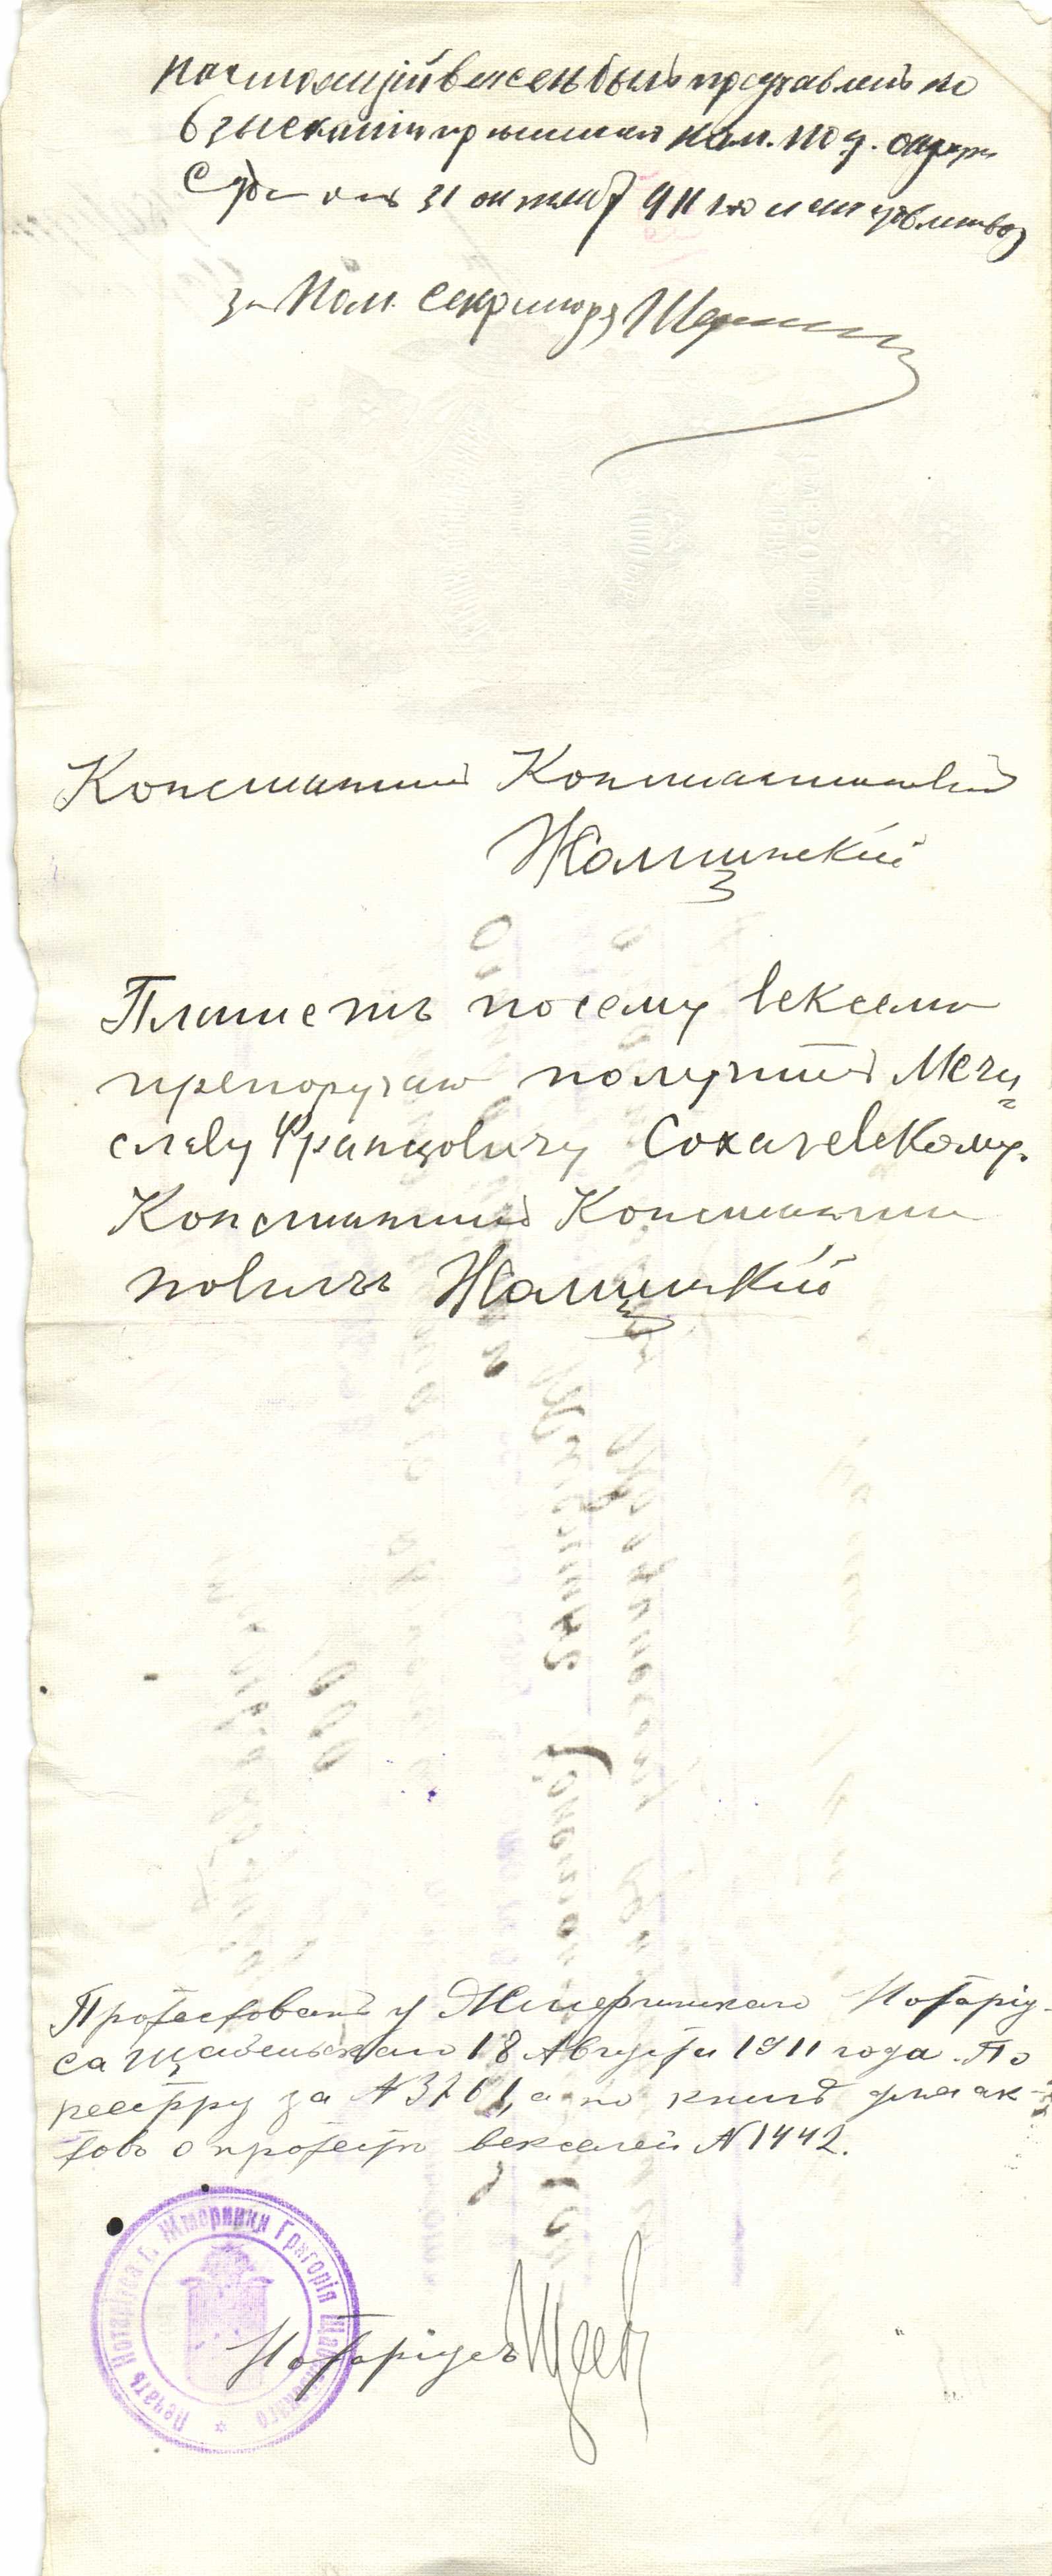 Настоящій вексель былъ представленъ ко
взысканію при исков. Кам. Под. окруж.
Суда 31 октября 911 го и удовлетвор
за Пом. Секретаря
Константинъ Константиновичъ
Жолцинскій
Платежъ по сему векселю
препоручаю получить Мечи
славу Францовичу Сохачевскому.
Константинъ Константи
новичъ Жолцинскій
Протестованъ у Жмеринскаго Нотаріу-
са Щабельскаго 18 Августа 1911 года. По
реестру за № 3761, а по книгѣ для ак-
товъ о протестѣ векселей № 1442.
Печать Нотаріуса г. Жмеринки Григорія Щабельскаго
Нотаріусъ